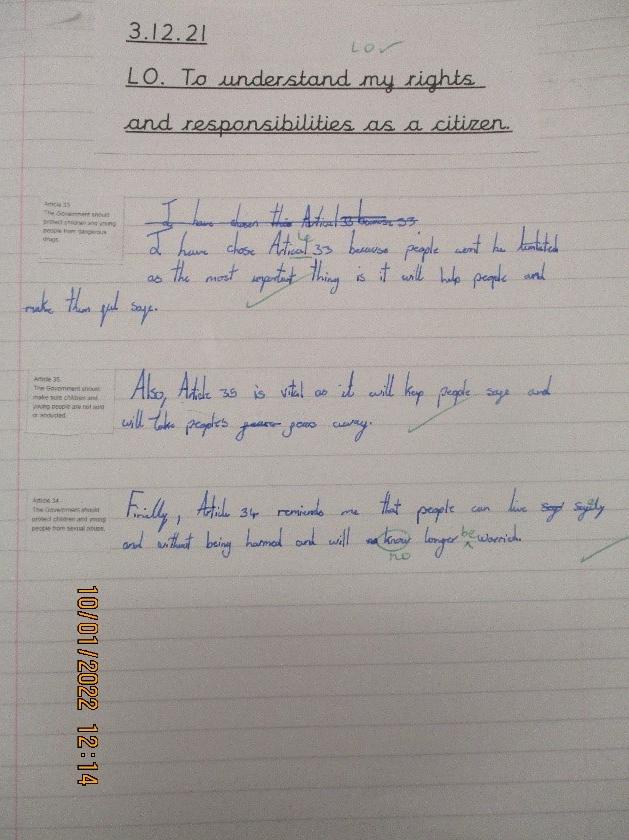 3.12.21
LO ✓
LO. To understand my rights
and responsibilities as a citizen.
Article 33
The Government should
protect children and young
people from dangerous
drugs.
I have chosen this Artical 33 because 33
I have chose Artical 33 because people wont be
as the most important thing is it will help people and
make them feel safe.
Article 35
The Government should
make sure children and
young people are not sold
or abducted.
Also, Article 35 is vital as it will keep people safe and
will take people's away.
Article 34
The Government should
protect children and young
people from sexual abuse.
Finally, Article 34 reminds me that people can live safely
and without being harmed and will know longer be worried.
no
10/01/2022 12:14